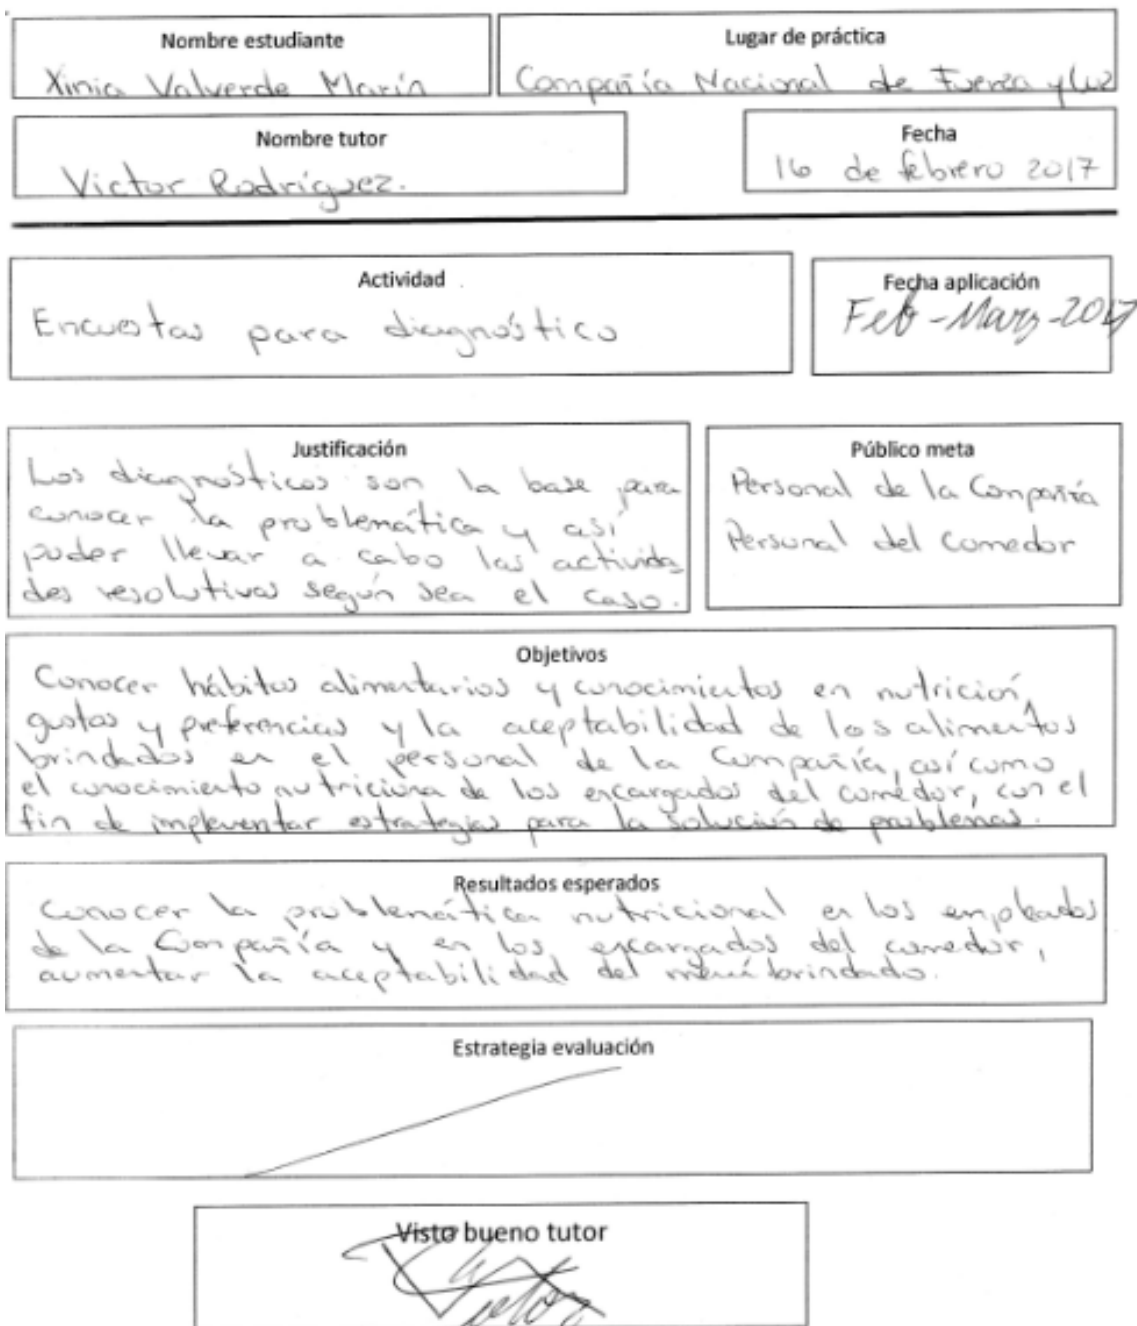 Nombre estudiante
Xinia Valverde Marín
Lugar de práctica
Compañía Nacional de Fuerza y Luz
Nombre tutor
Victor Rodríguez.
Fecha
16 de febrero 2017
Actividad
Encuestas para diagnóstico
Fecha aplicación
Feb-Marz-2017
Justificación
Los diagnósticos son la base para
conocer la problemática y así
poder llevar a cabo las activida
des resolutivas según sea el caso.
Público meta
Personal de la Compañía
Personal del comedor
Objetivos
Conocer hábitos alimentarios y conocimientos en nutrición,
gustos y preferencias y la aceptabilidad de los alimentos
brindados en el personal de la Compañía, así como
el conocimiento nutriciona de los encargados del comedor, con el
fin de implementar estrategias para la solución de problemas.
Resultados esperados
Conocer la problemática nutricional en los empleados
de la Compañía y en los encargados del comedor,
aumentar la aceptabilidad del menú brindado.
Estrategia evaluación
Visto bueno tutor